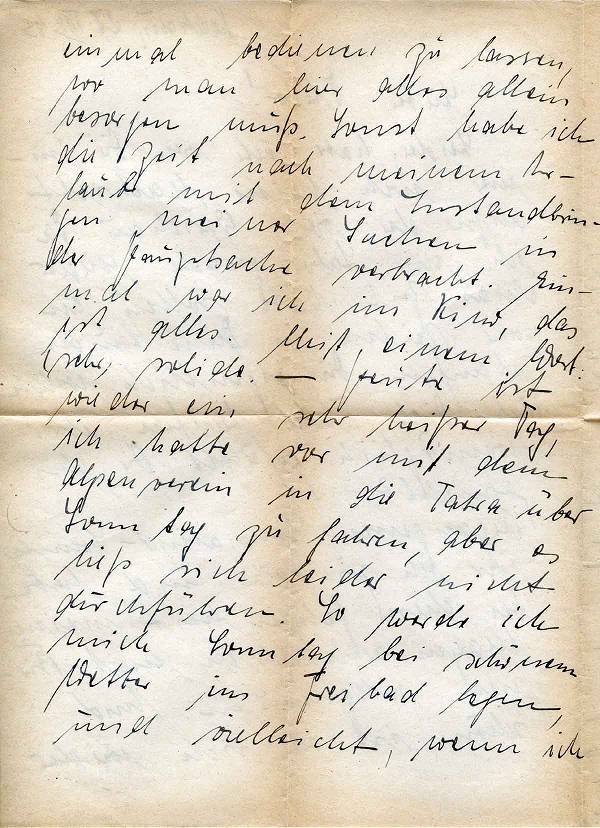 einmal bedienen zu lassen,
wo man hier alles allein
besorgen muß. Sonst habe ich
die Zeit nach meinem Ur-
laub mit dem Instandbrin-
gen meiner Sachen in
der Hauptsache verbracht. Ein-
mal war ich im Kino, das
ist alles. Mit einem Wort:
sehr solide. — Heute ist
wieder ein sehr heißer Tag,
ich hatte vor mit dem
Alpenverein in die Tatra über
Sonntag zu fahren, aber es
ließ sich leider nicht
durchführen. So werde ich
mich Sonntag bei schönem
Wetter ins Freibad legen,
und vielleicht, wenn ich